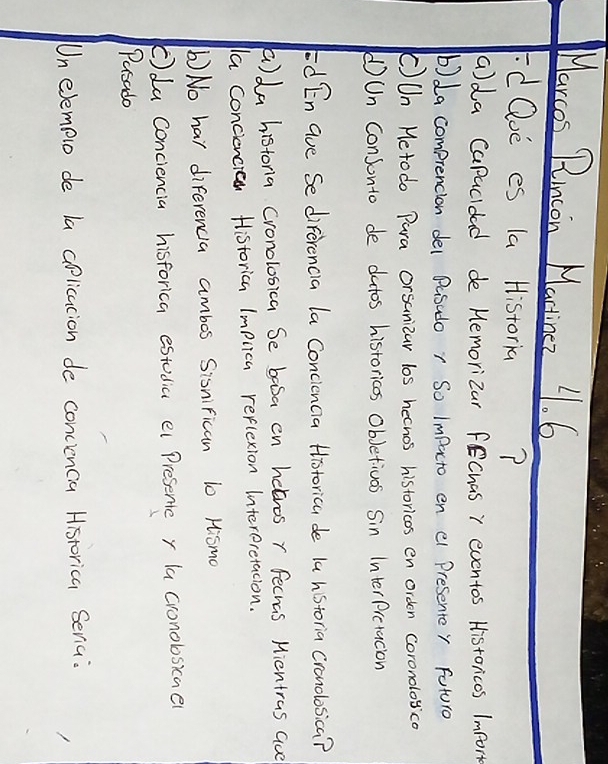 Marcos Rincón Martinez 4.6
-¿Qué es la Historia ?
a) La capacidad de Memorizar fEchas y eventos Historicos Import
b) La comprencion del Pasado y So Impacto en el Presente y Futuro
c) Un Metodo Para organizar los hechos historicos en orden coronologico
d) Un Conjunto de datos historicos Objetivos Sin InterPretacion
-¿En que se diferencia la Conciencia Historica de la historia Cronologica?
a) La historia Cronologica Se basa en hechos y Fechas Mientras que
la Conciencia Historica Implica reflexion InterPretacion.
b) No hay diferencia ambos Significan lo Mismo
c) La conciencia historica estudia el Presente y la cronologica el
Pasado
Un ejemplo de la aplicacion de conciencia Historica Seria: